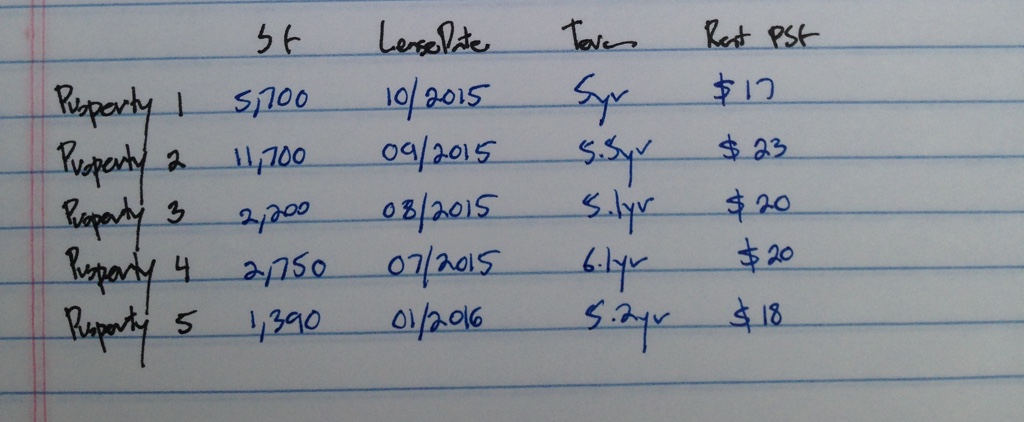 SF Lease Date Term Rent PSF
Property 1 5,700 10/2015 5yr $17
Property 2 11,700 09/2015 5.5yr $23
Property 3 2,200 08/2015 5.1yr $20
Property 4 2,750 07/2015 6.1yr $20
Property 5 1,390 01/2016 5.2yr $18